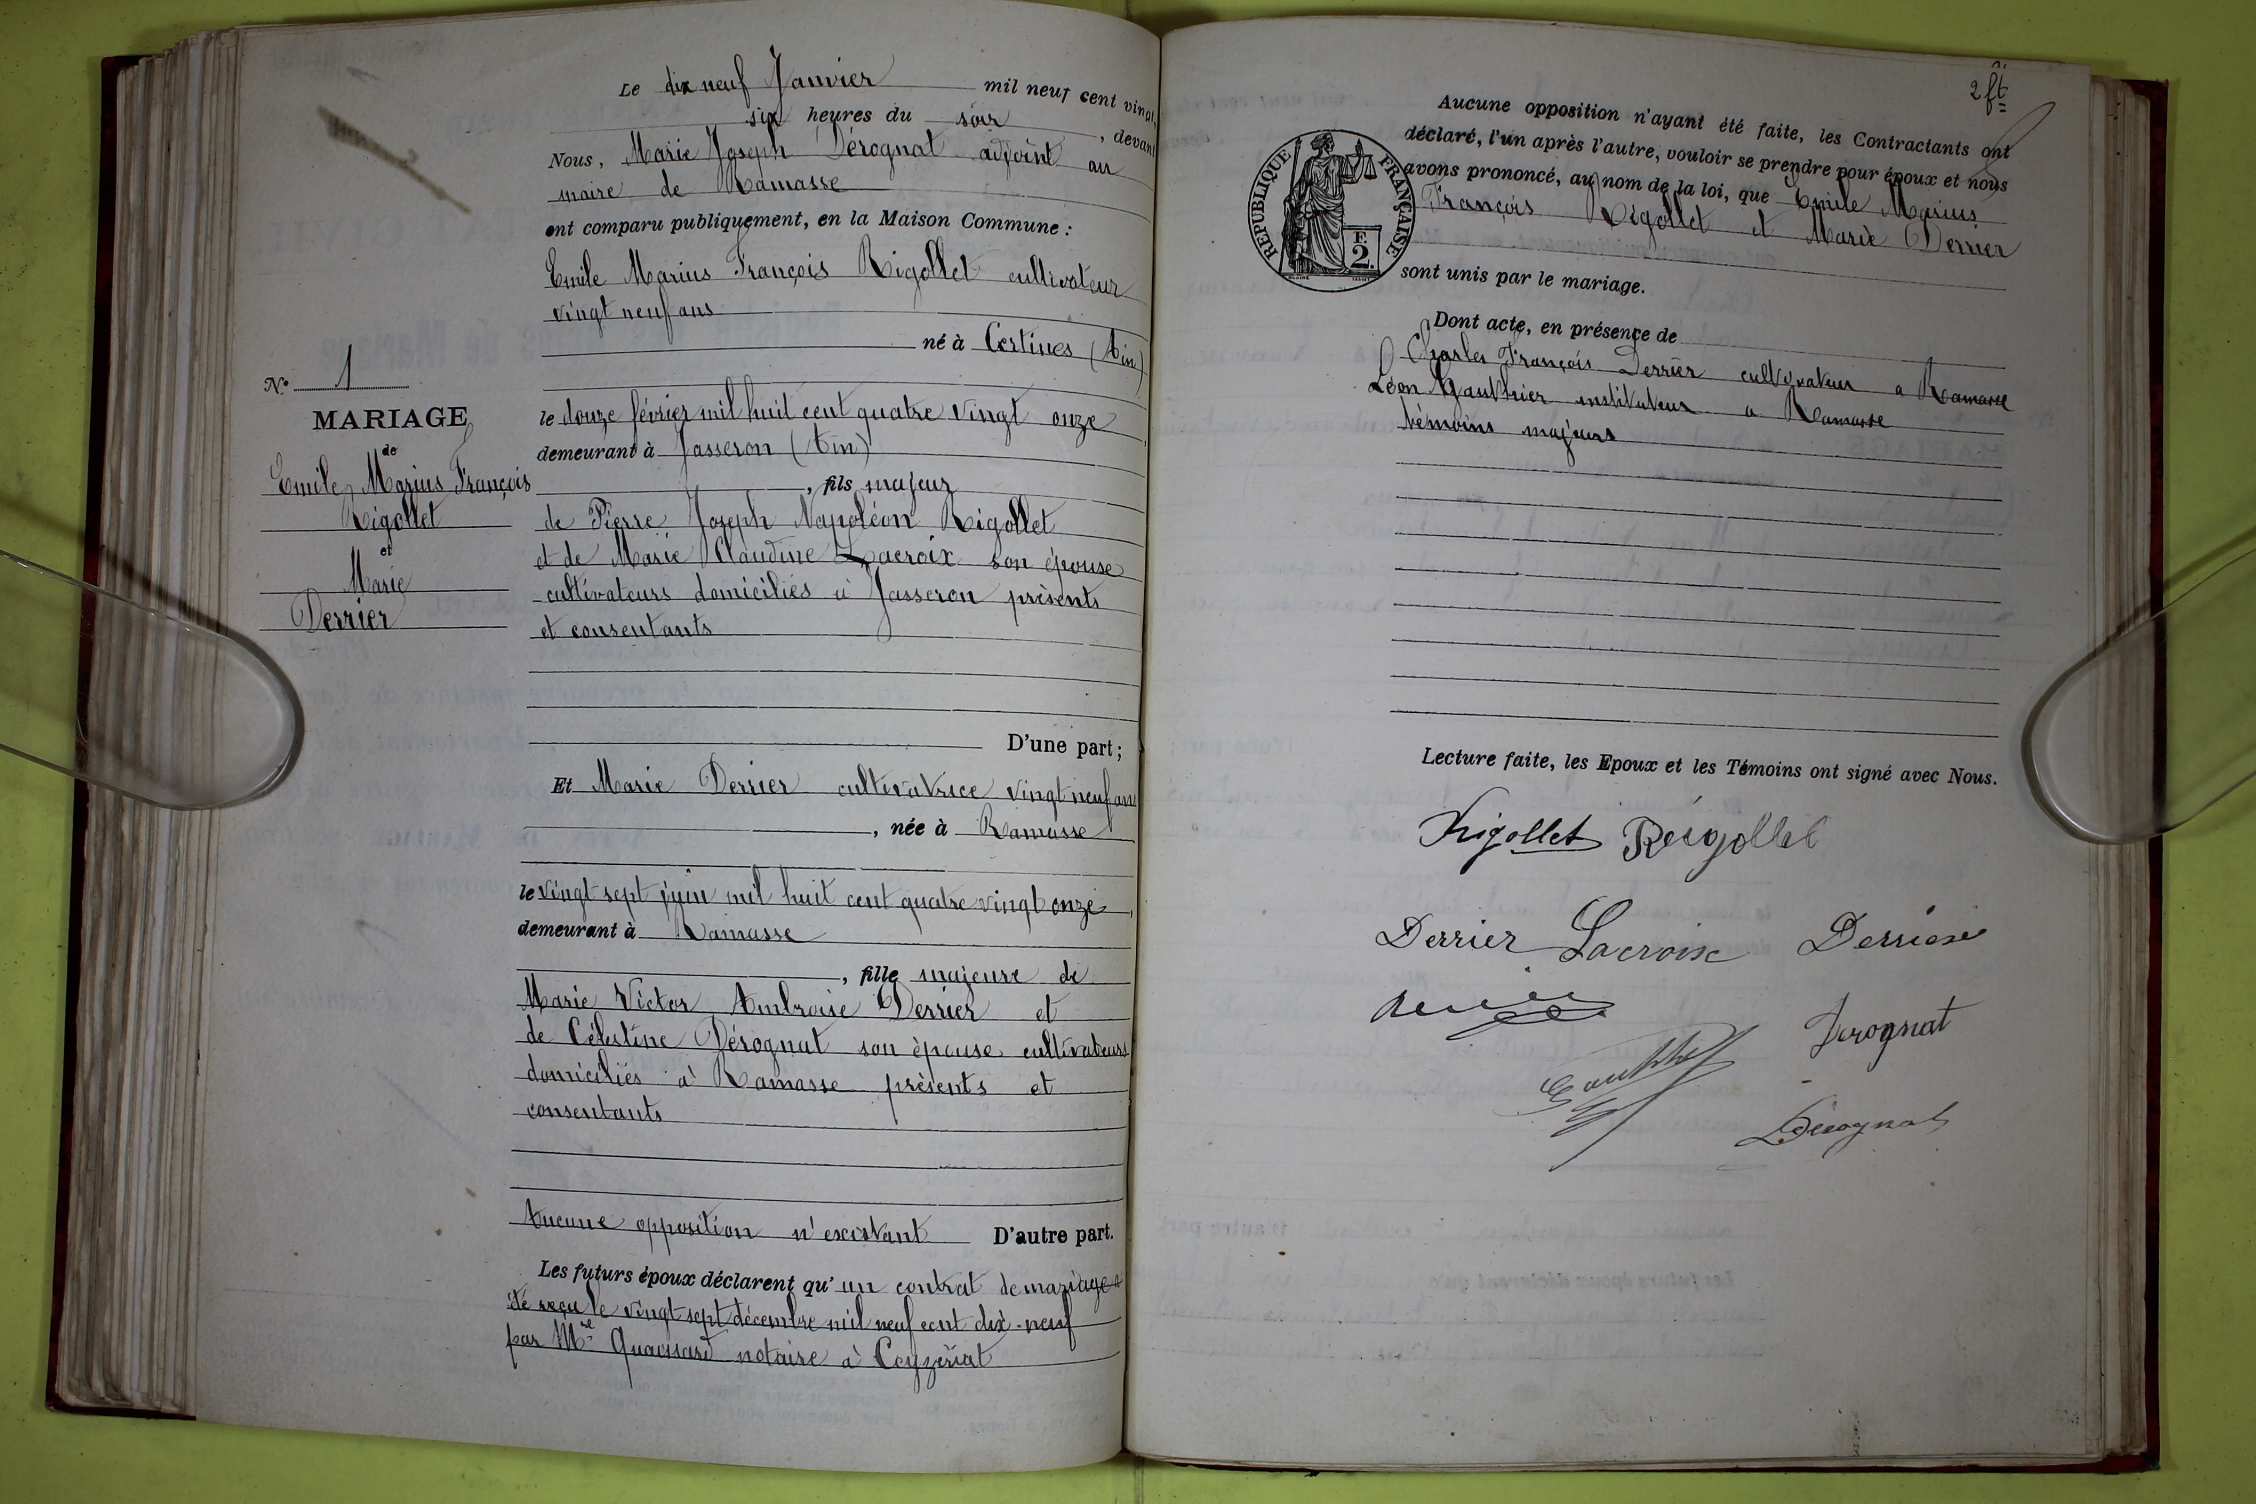 Le dix neuf Janvier mil neuf cent vingt,
six heures du soir, devant
Nous, Marie Joseph Dérognat adjoint au
maire de Ramasse
ont comparu publiquement, en la Maison Commune :
Emile Marius François Rigollet cultivateur
vingt neuf ans
né à Certines (Ain)
le douze février mil huit cent quatre vingt onze,
demeurant à Jasseron (Ain)
, fils majeur
de Pierre Joseph Napoléon Rigollet
et de Marie Claudine Lacroix son épouse
cultivateurs domiciliés à Jasseron présents
et consentants
D'une part ;
Et Marie Derrier cultivatrice vingt neuf ans
, née à Ramasse
le vingt sept juin mil huit cent quatre vingt onze,
demeurant à Ramasse
, fille majeure de
Marie Victor Ambroise Derrier et
de Célestine Dérognat son épouse cultivateurs
domiciliés à Ramasse présents et
consentants
Aucune opposition n'existant D'autre part.
Les futurs époux déclarent qu'un contrat de mariage a
été reçu le vingt sept décembre mil neuf cent dix-neuf
par Me notaire à Ceyzériat
N° 1
MARIAGE
de
Emile Marius François
Rigollet
et
Marie
Derrier
2 ft
RÉPUBLIQUE FRANÇAISE
F.
2.
Aucune opposition n'ayant été faite, les Contractants ont
déclaré, l'un après l'autre, vouloir se prendre pour époux et nous
avons prononcé, au nom de la loi, que Emile Marius
François Rigollet et Marie Derrier
sont unis par le mariage.
Dont acte, en présence de
Charles François Derrier cultivateur a Ramasse
Léon Gauthier instituteur a Ramasse
témoins majeurs
Lecture faite, les Epoux et les Témoins ont signé avec Nous.
Rigollet Rigollet
Derrier Lacroix Derrier
Derognat
Gauthier
Dérognat